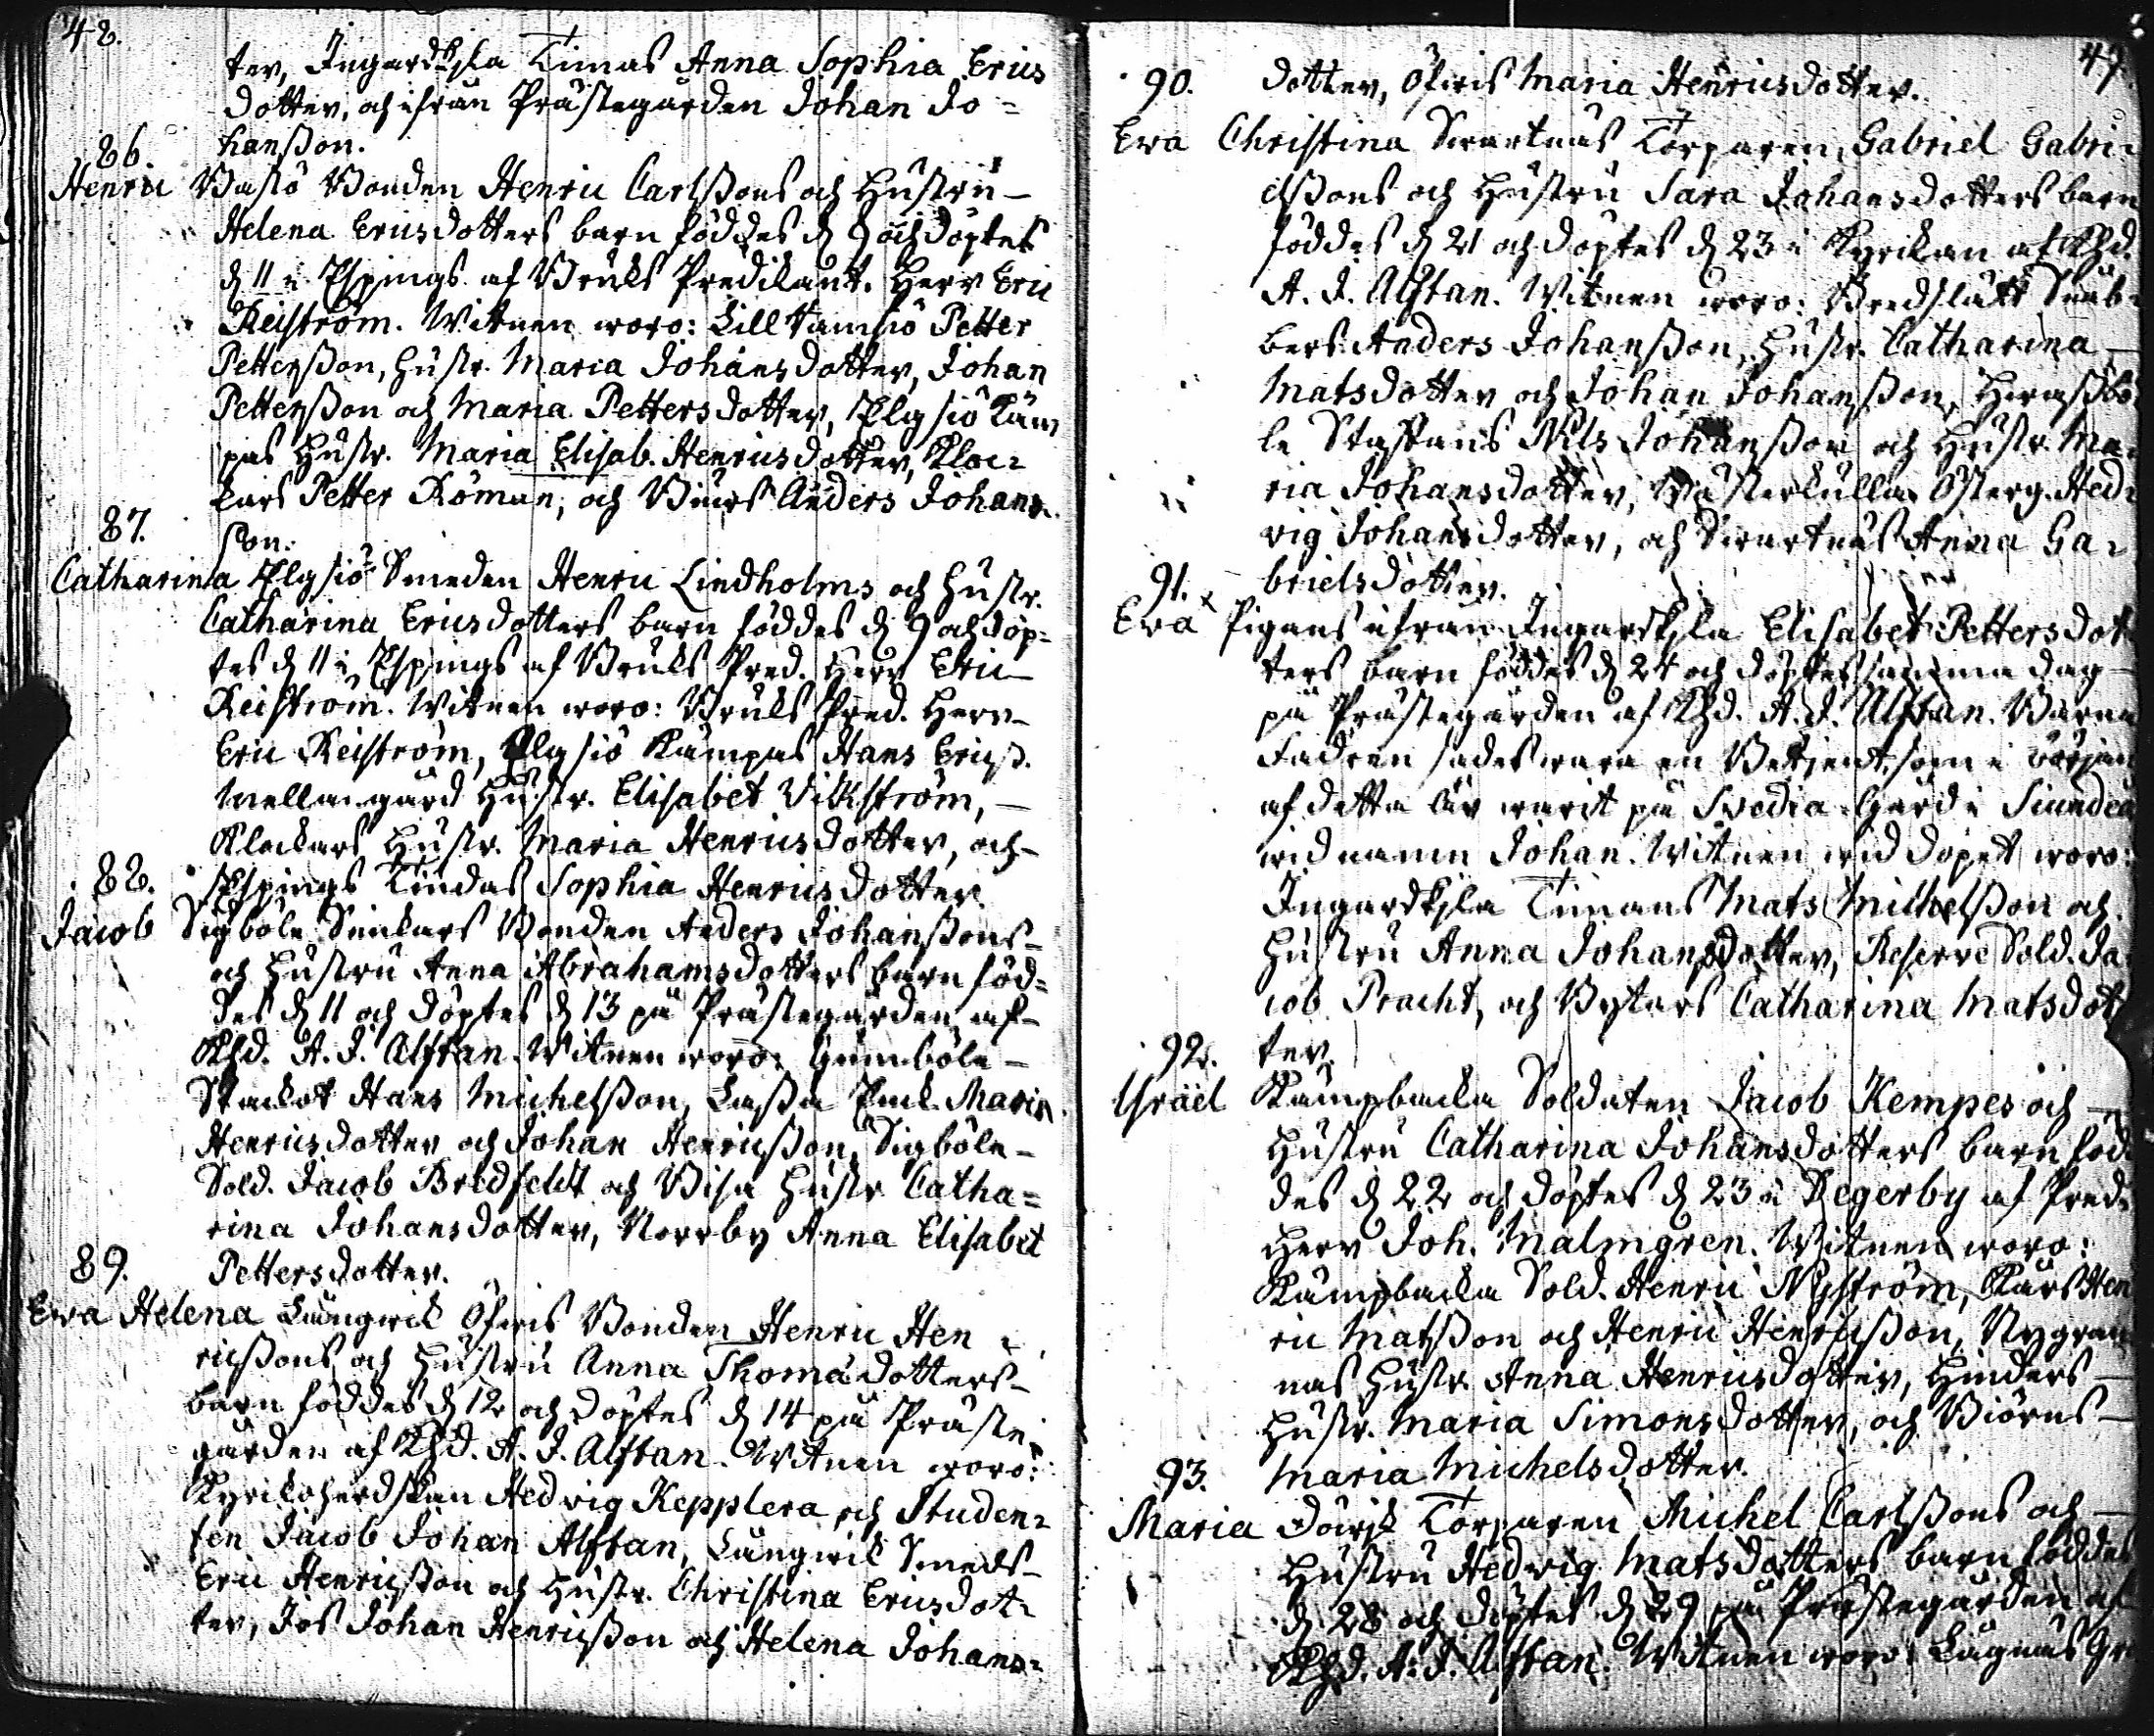 48.
ter, Ingardskyla Timas Anna Sophia Erics
dotter, och ifrån Prästegården Johan Jo=
hansson.
86.
Henric Basiö Bonden Henric Carlssons och Hustru
Helena Ericsdotters barn föddes d 9 och döptes
d 11 i Espings af Bruks Predikant. Herr Eric
Reiström. Witnen woro: Lill Ramsiö Petter
Pettersson, Hustr. Maria Johansdotter, Johan
Pettersson och Maria Pettersdotter, Elgsiö Käm
pas Hustr. Maria Elisab. Henricsdotter, Kloc=
kars Petter Röman, och Anders Johans
son.
87.
Catharina Elgsiö Smeden Henric Lindholms och Hustr.
Catharina Ericsdotters barn föddes d 9 och döp=
tes d 11 i Espings af Bruks Pred. Herr Eric
Reiström. Witnen woro: Bruks Pred. Herr
Eric Reiström, Elgsiö Kämpas Hans Ericss.
Mellangård Hustr. Elisabet Vikström,
Klockars Hustr. Maria Henricsdotter, och
88. Espings Lindas Sophia Henricsdotter.
Jacob Sigböle Sinkars Bonden Anders Johanssons
och Hustru Anna Abrahamsdotters barn föd=
des d 11 och döptes d 13 på Prästegården af
Khd. A. J. Alftan. Witnen woro: Gumböle
Stackot Hans Michelsson, Lassa Maria
Henricsdotter och Johan Henricsson, Sigböle
Sold. Jacob Bredfeldt och Bisa Hustr. Catha=
rina Johansdotter, Norrby Anna Elisabet
89. Pettersdotter.
Ewa Helena Långwik Öfwis Bonden Henric Hen
ricssons och Hustru Anna Thomædotters
barn föddes d 12 och döptes d 14 på Präste
gården af Khd. A. J. Alftan. Witnen woro:
Kyrkoherdskan Hedvig Kepplera och Studen=
ten Jacob Johan Alftan, Långwik Smeds
Eric Henricsson och Hustr. Christina Ericsdot=
ter, Jos Johan Henricsson och Helena Johans=
47.
90. dotter, Öfwis Maria Henricsdotter.
Ewa Christina Swartnäs Torparen, Gabriel Gabri=
elssons och Hustru Sara Johansdotters barn
föddes d 21 och döptes d 23 i Kyrckan af Khd.
A. J. Alftan. Witnen woro: Bredslätt Snub=
bers Anders Johansson, Hustr. Catharina
Matsdotter och Johan Johansson,
le Staffans Nils Johansson och Hustr. Ma=
ria Johansdotter, Wästerkulla Österg. Hed=
vig Johansdotter, och Swartnäs Anna Ga=
91. brielsdotter.
Ewa Pigans ifrån Ingardskyla Elisabet Pettersdot
ters barn föddes d 24 och döptes samma dag
på Prästegården af Khd. A. J. Alftan. Barna
Fadren sades wara en Betjent, som i början
af detta år warit på Svedia Gård i Siundeå
wid namn Johan. Witnen wid dopet woro:
Ingardskyla Timans Mats Michelsson och
Hustru Anna Johansdotter, Reserve Sold. Ja
cob Pracht, och Bytars Catharina Matsdot
92. ter.
Israël Kämpbacka Soldaten Jacob Kempes och
Hustru Catharina Johansdotters barn föd
des d 22 och döptes d 23 i Degerby af Pred.
Herr Joh. Malmgren. Witnen woro:
Kämpbacka Sold. Henric Nyström, Kårs Hen
ric Matsson och Henric Henricsson, Nygran
nas Hustr. Anna Henricsdotter, Hinders
Hustr. Maria Simonsdotter, och Biörns
93. Maria Michelsdotter.
Maria Torparen Michel Carlssons och
Hustru Hedvig Matsdotters barn föddes
d 28 och döptes d 29 på Prästegården af
Khd. A. J. Alftan. Witnen woro: Lågnäs